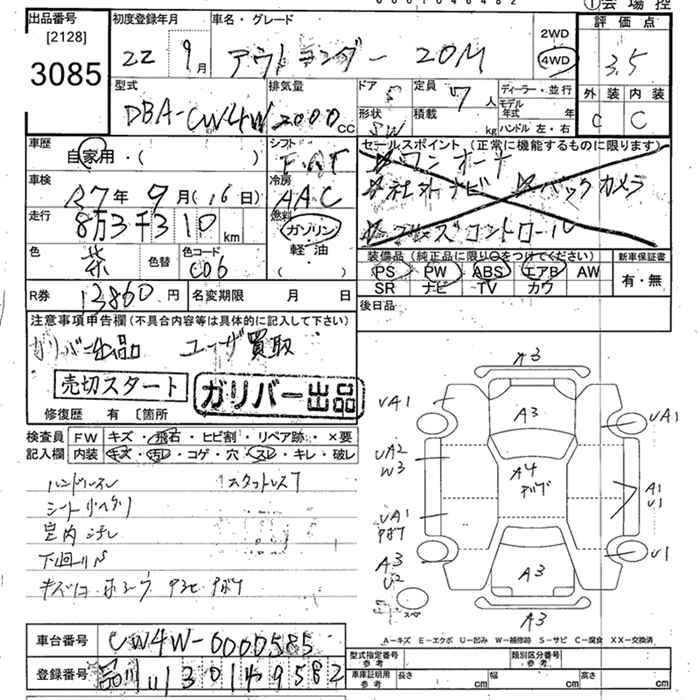 ①会場控
出品番号
[2128]
3085
初度登録年月
22 9月
車名・グレード
アウトランダー 20M
2WD
4WD
評価点
3.5
外装 内装
C C
型式
DBA-CW4W
排気量
2000 CC
ドア
5
形状
SW
定員
7人
積載
kg
ディーラー・並行
モデル
年式 年
ハンドル 左・右
車歴
自家用・( )
シフト
FAT
セールスポイント (正常に機能するものに限ります)
☆ワンオーナ
☆社外ナビ ☆バックカメラ
☆クルーズコントロール
車検
R7年9月(16日)
冷房
AAC
走行
8万3千310km
燃料
ガソリン
軽・油
( )
色
茶
色替
色コード
C06
装備品 (純正品に限り○をつけてください)
PS PW ABS エアB AW
SR ナビ TV カワ
新車保証書
有・無
R券
12860円
名変期限 月 日
後日品
注意事項申告欄 (不具合内容等は具体的に記入して下さい)
ガリバー出品 ユーザ買取
売切スタート
ガリバー出品
修復歴 有 〔箇所
検査員 FW キズ・飛石・ヒビ割・リペア跡・×要
記入欄 内装 キズ・汚レ・コゲ・穴・スレ・キレ・破レ
ハンドルスレ
シート
室内汚レ
下回りS
A3
UA1
A3
UA1
UA2
W3
A4
A1
U1
UA1
A3
U2
U1
A3
スペ
A3
A-キズ E-エクボ U-凹み W-補修跡 S-サビ C-腐食 XX-交換済
車台番号
CW4W-0000585
登録番号
品川
型式指定番号
参考
類別区分番号
参考
車庫証明用
参考
長さ cm
幅 cm
高さ cm